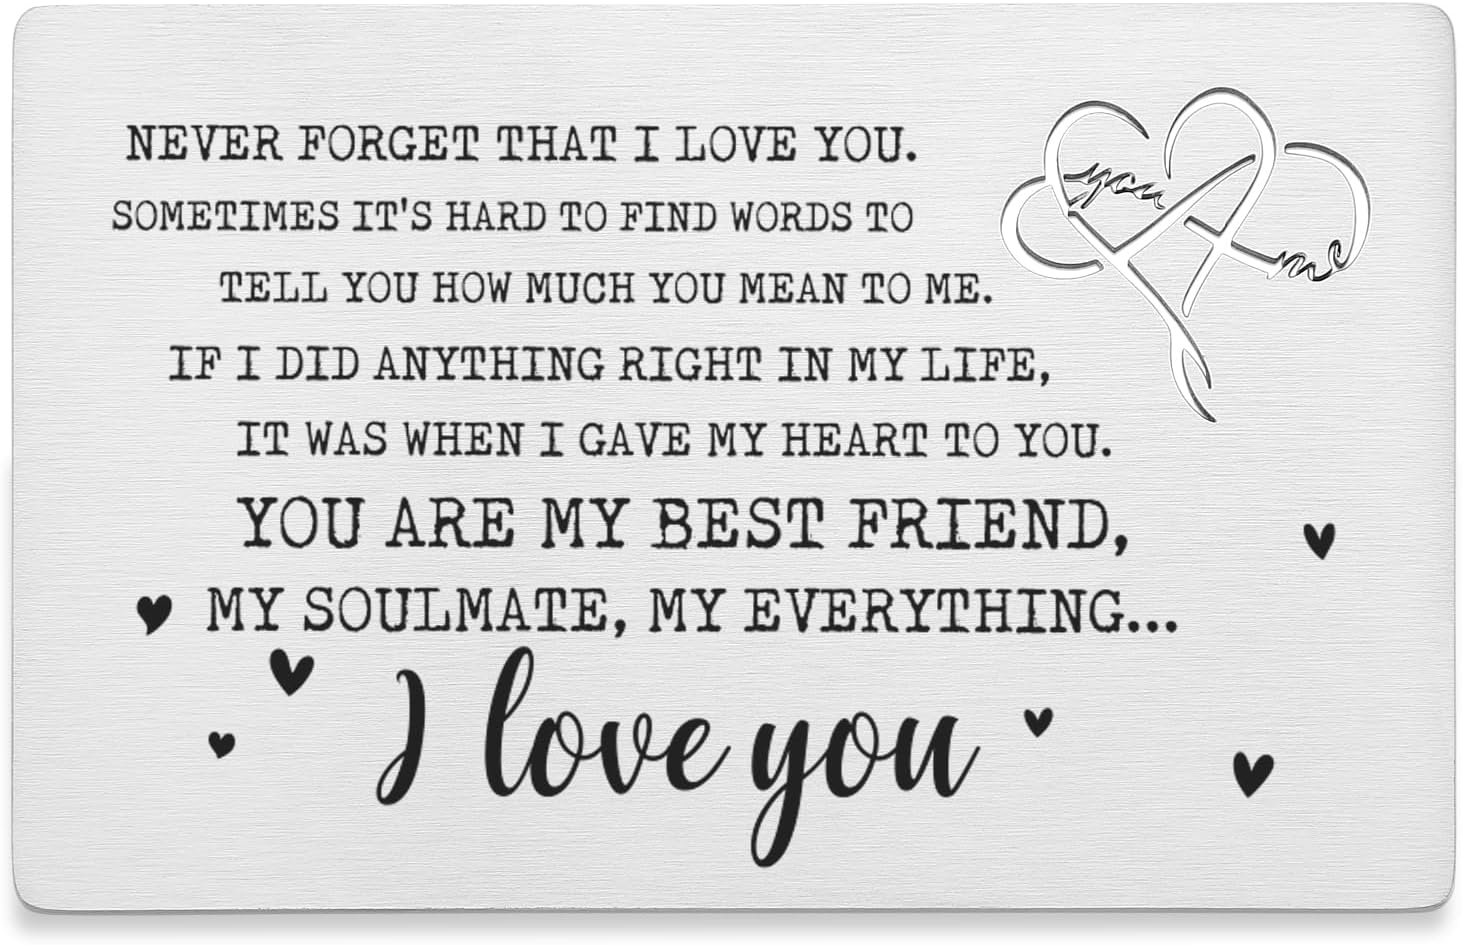 NEVER FORGET THAT I LOVE YOU.
SOMETIMES IT'S HARD TO FIND WORDS TO
TELL YOU HOW MUCH YOU MEAN TO ME.
IF I DID ANYTHING RIGHT IN MY LIFE,
IT WAS WHEN I GAVE MY HEART TO YOU.
YOU ARE MY BEST FRIEND,
MY SOULMATE, MY EVERYTHING...
I love you
you
me